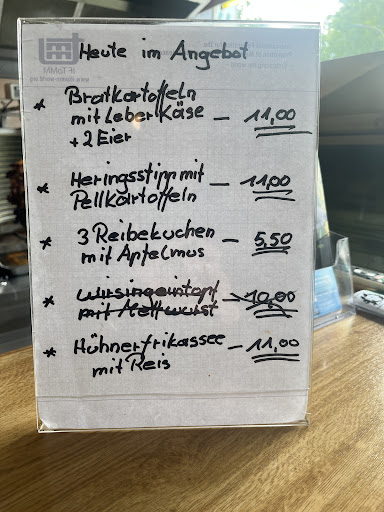 Heute im Angebot
* Bratkartoffeln
mit Leberkäse — 11,00
+ 2 Eier
* Heringsstipp mit — 11,00
Pellkartoffeln
* 3 Reibekuchen — 5,50
mit Apfelmus
* Wirsingeintopf — 10,00
mit Mettwurst
* Hühnerfrikassee — 11,00
mit Reis